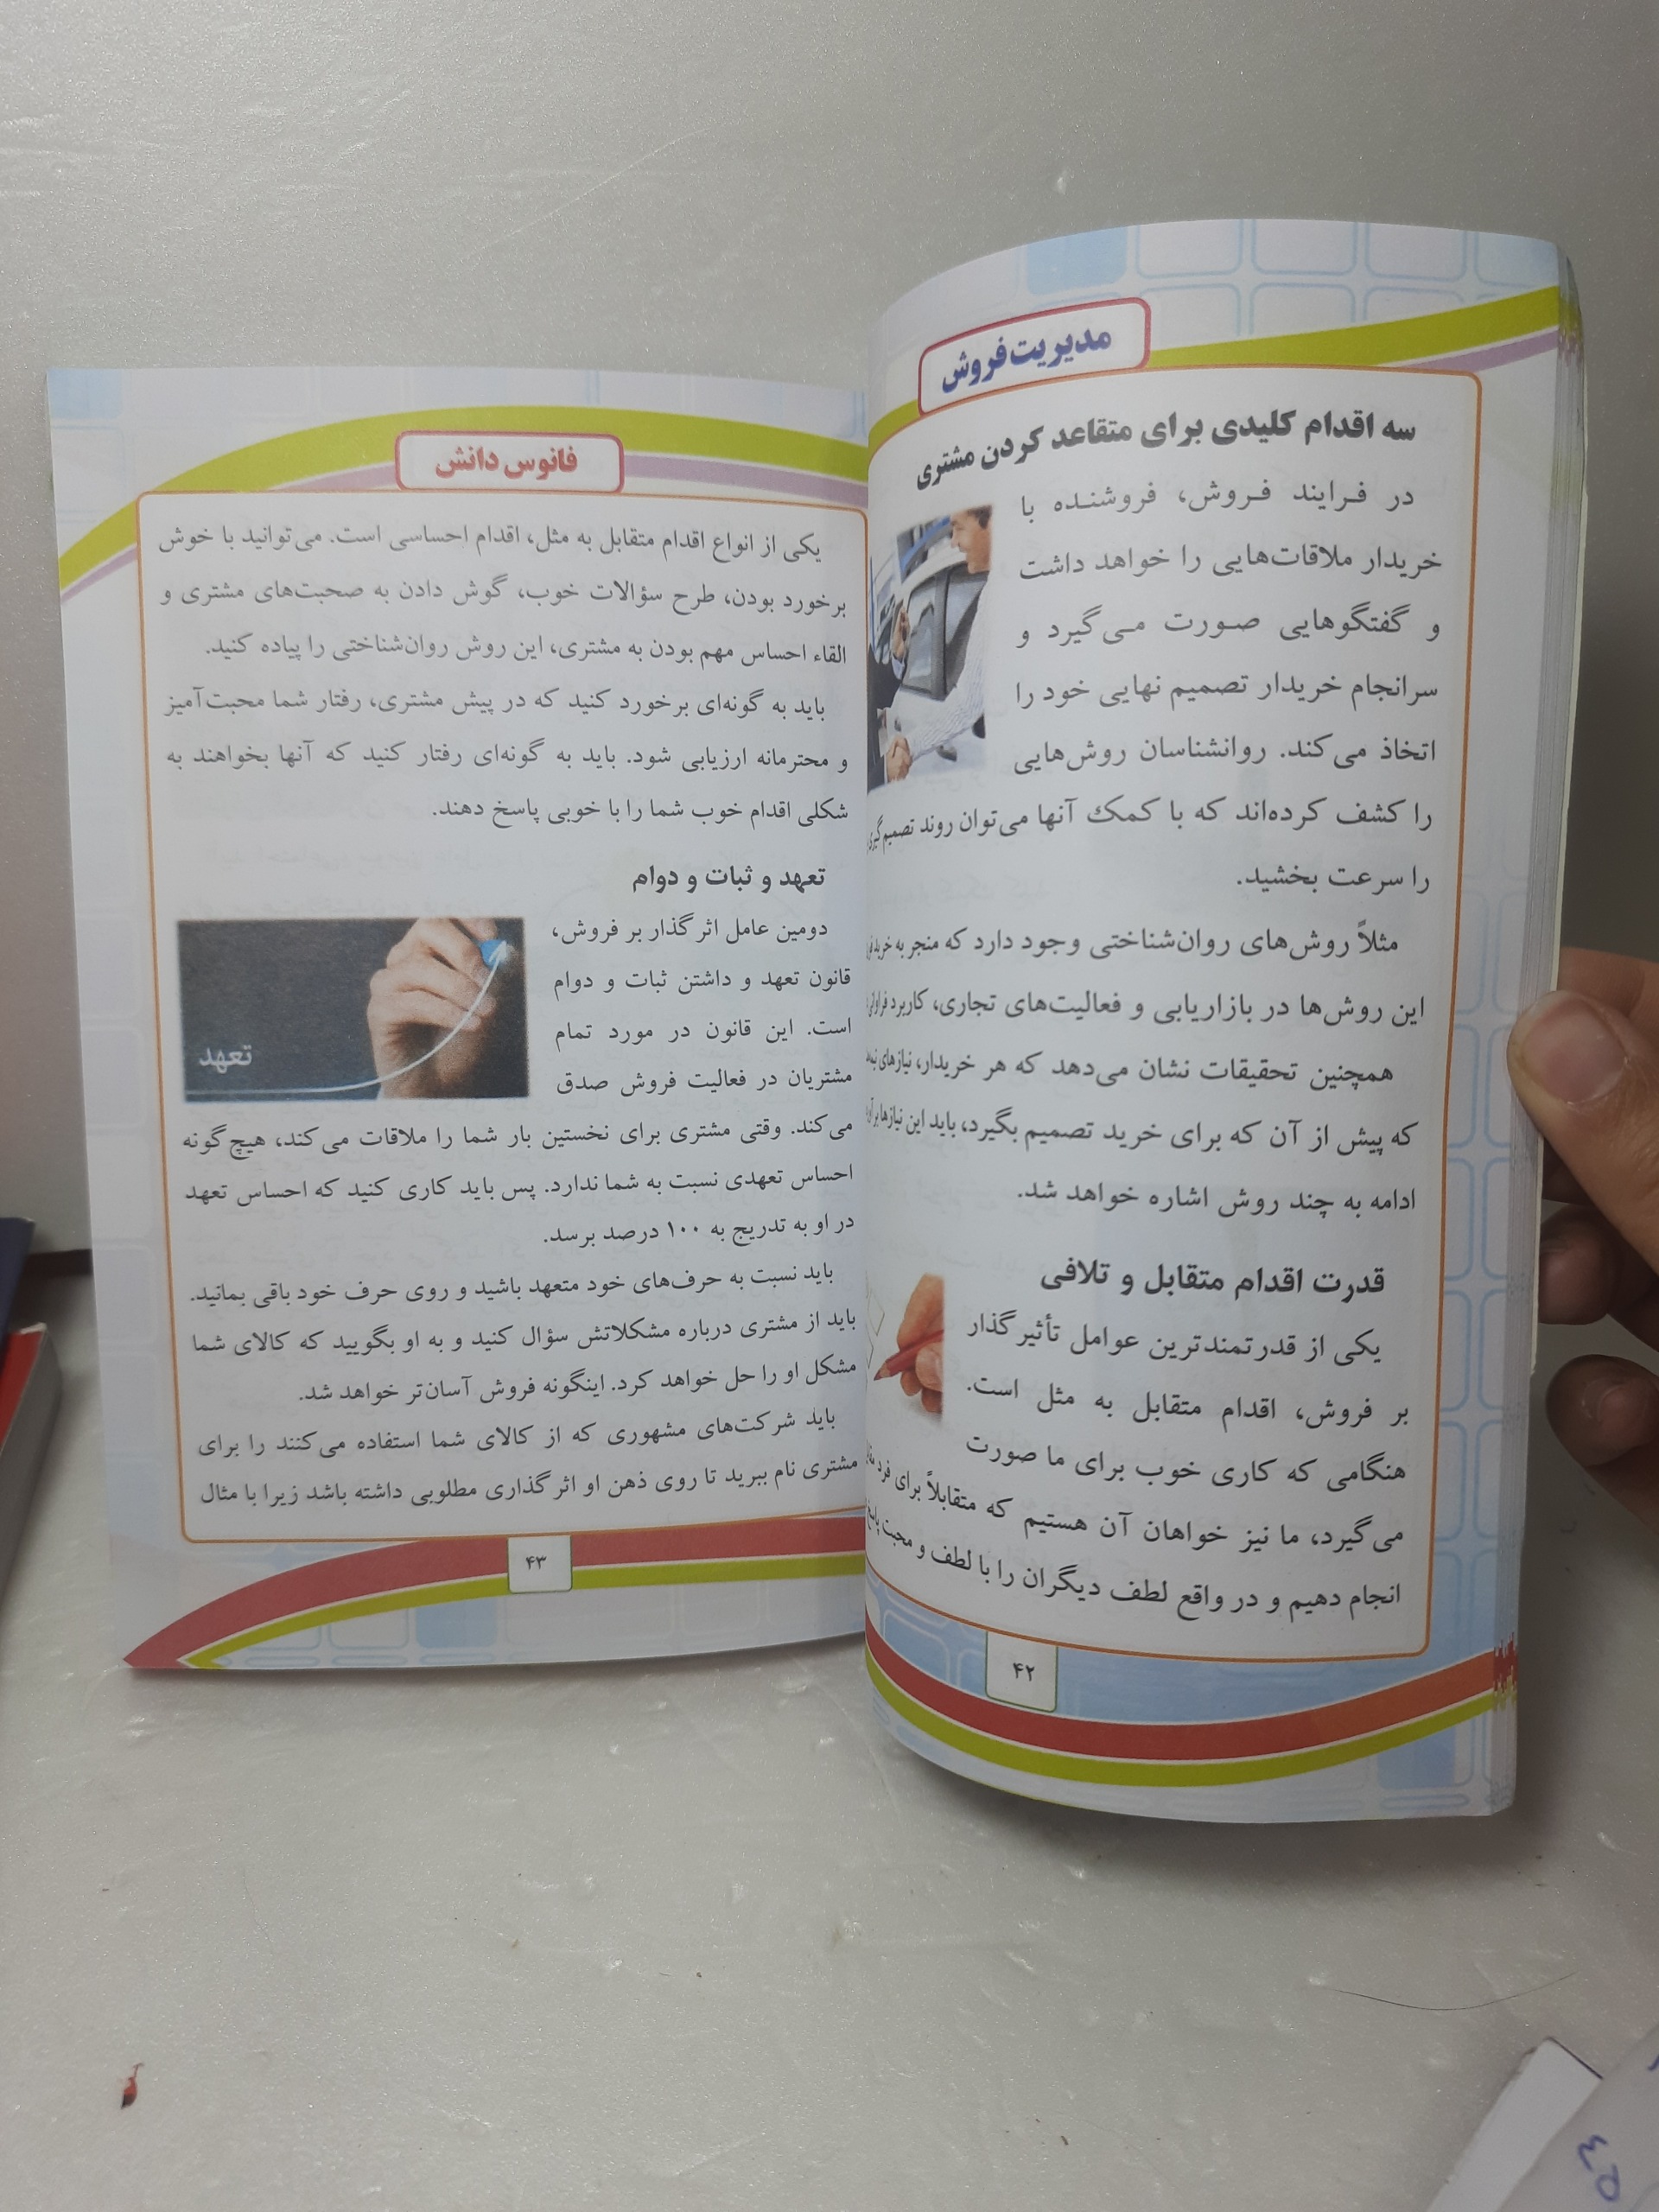 مدیریت فروش
سه اقدام کلیدی برای متقاعد کردن مشتری
در فرایند فروش، فروشنده با
خریدار ملاقات‌هایی را خواهد داشت
و گفتگوهایی صورت می‌گیرد و
سرانجام خریدار تصمیم نهایی خود را
اتخاذ می‌کند. روانشناسان روش‌هایی
را کشف کرده‌اند که با کمک آنها می‌توان روند تصمیم‌گیری
را سرعت بخشید.
مثلاً روش‌های روان‌شناختی وجود دارد که منجر به خرید
این روش‌ها در بازاریابی و فعالیت‌های تجاری، کاربرد
همچنین تحقیقات نشان می‌دهد که هر خریدار، نیازهای
که پیش از آن که برای خرید تصمیم بگیرد، باید این نیازها
ادامه به چند روش اشاره خواهد شد.
قدرت اقدام متقابل و تلافی
یکی از قدرتمندترین عوامل تأثیرگذار
بر فروش، اقدام متقابل به مثل است.
هنگامی که کاری خوب برای ما صورت
می‌گیرد، ما نیز خواهان آن هستیم که متقابلاً برای فرد
انجام دهیم و در واقع لطف دیگران را با لطف و محبت
۴۲
فانوس دانش
یکی از انواع اقدام متقابل به مثل، اقدام احساسی است. می‌توانید با خوش
برخورد بودن، طرح سؤالات خوب، گوش دادن به صحبت‌های مشتری و
القاء احساس مهم بودن به مشتری، این روش روان‌شناختی را پیاده کنید.
باید به گونه‌ای برخورد کنید که در پیش مشتری، رفتار شما محبت‌آمیز
و محترمانه ارزیابی شود. باید به گونه‌ای رفتار کنید که آنها بخواهند به
شکلی اقدام خوب شما را با خوبی پاسخ دهند.
تعهد و ثبات و دوام
دومین عامل اثرگذار بر فروش،
قانون تعهد و داشتن ثبات و دوام
است. این قانون در مورد تمام
مشتریان در فعالیت فروش صدق
می‌کند. وقتی مشتری برای نخستین بار شما را ملاقات می‌کند، هیچ‌گونه
احساس تعهدی نسبت به شما ندارد. پس باید کاری کنید که احساس تعهد
در او به تدریج به ۱۰۰ درصد برسد.
باید نسبت به حرف‌های خود متعهد باشید و روی حرف خود باقی بمانید.
باید از مشتری درباره مشکلاتش سؤال کنید و به او بگویید که کالای شما
مشکل او را حل خواهد کرد. اینگونه فروش آسان‌تر خواهد شد.
باید شرکت‌های مشهوری که از کالای شما استفاده می‌کنند را برای
مشتری نام ببرید تا روی ذهن او اثرگذاری مطلوبی داشته باشد زیرا با مثال
تعهد
۴۳